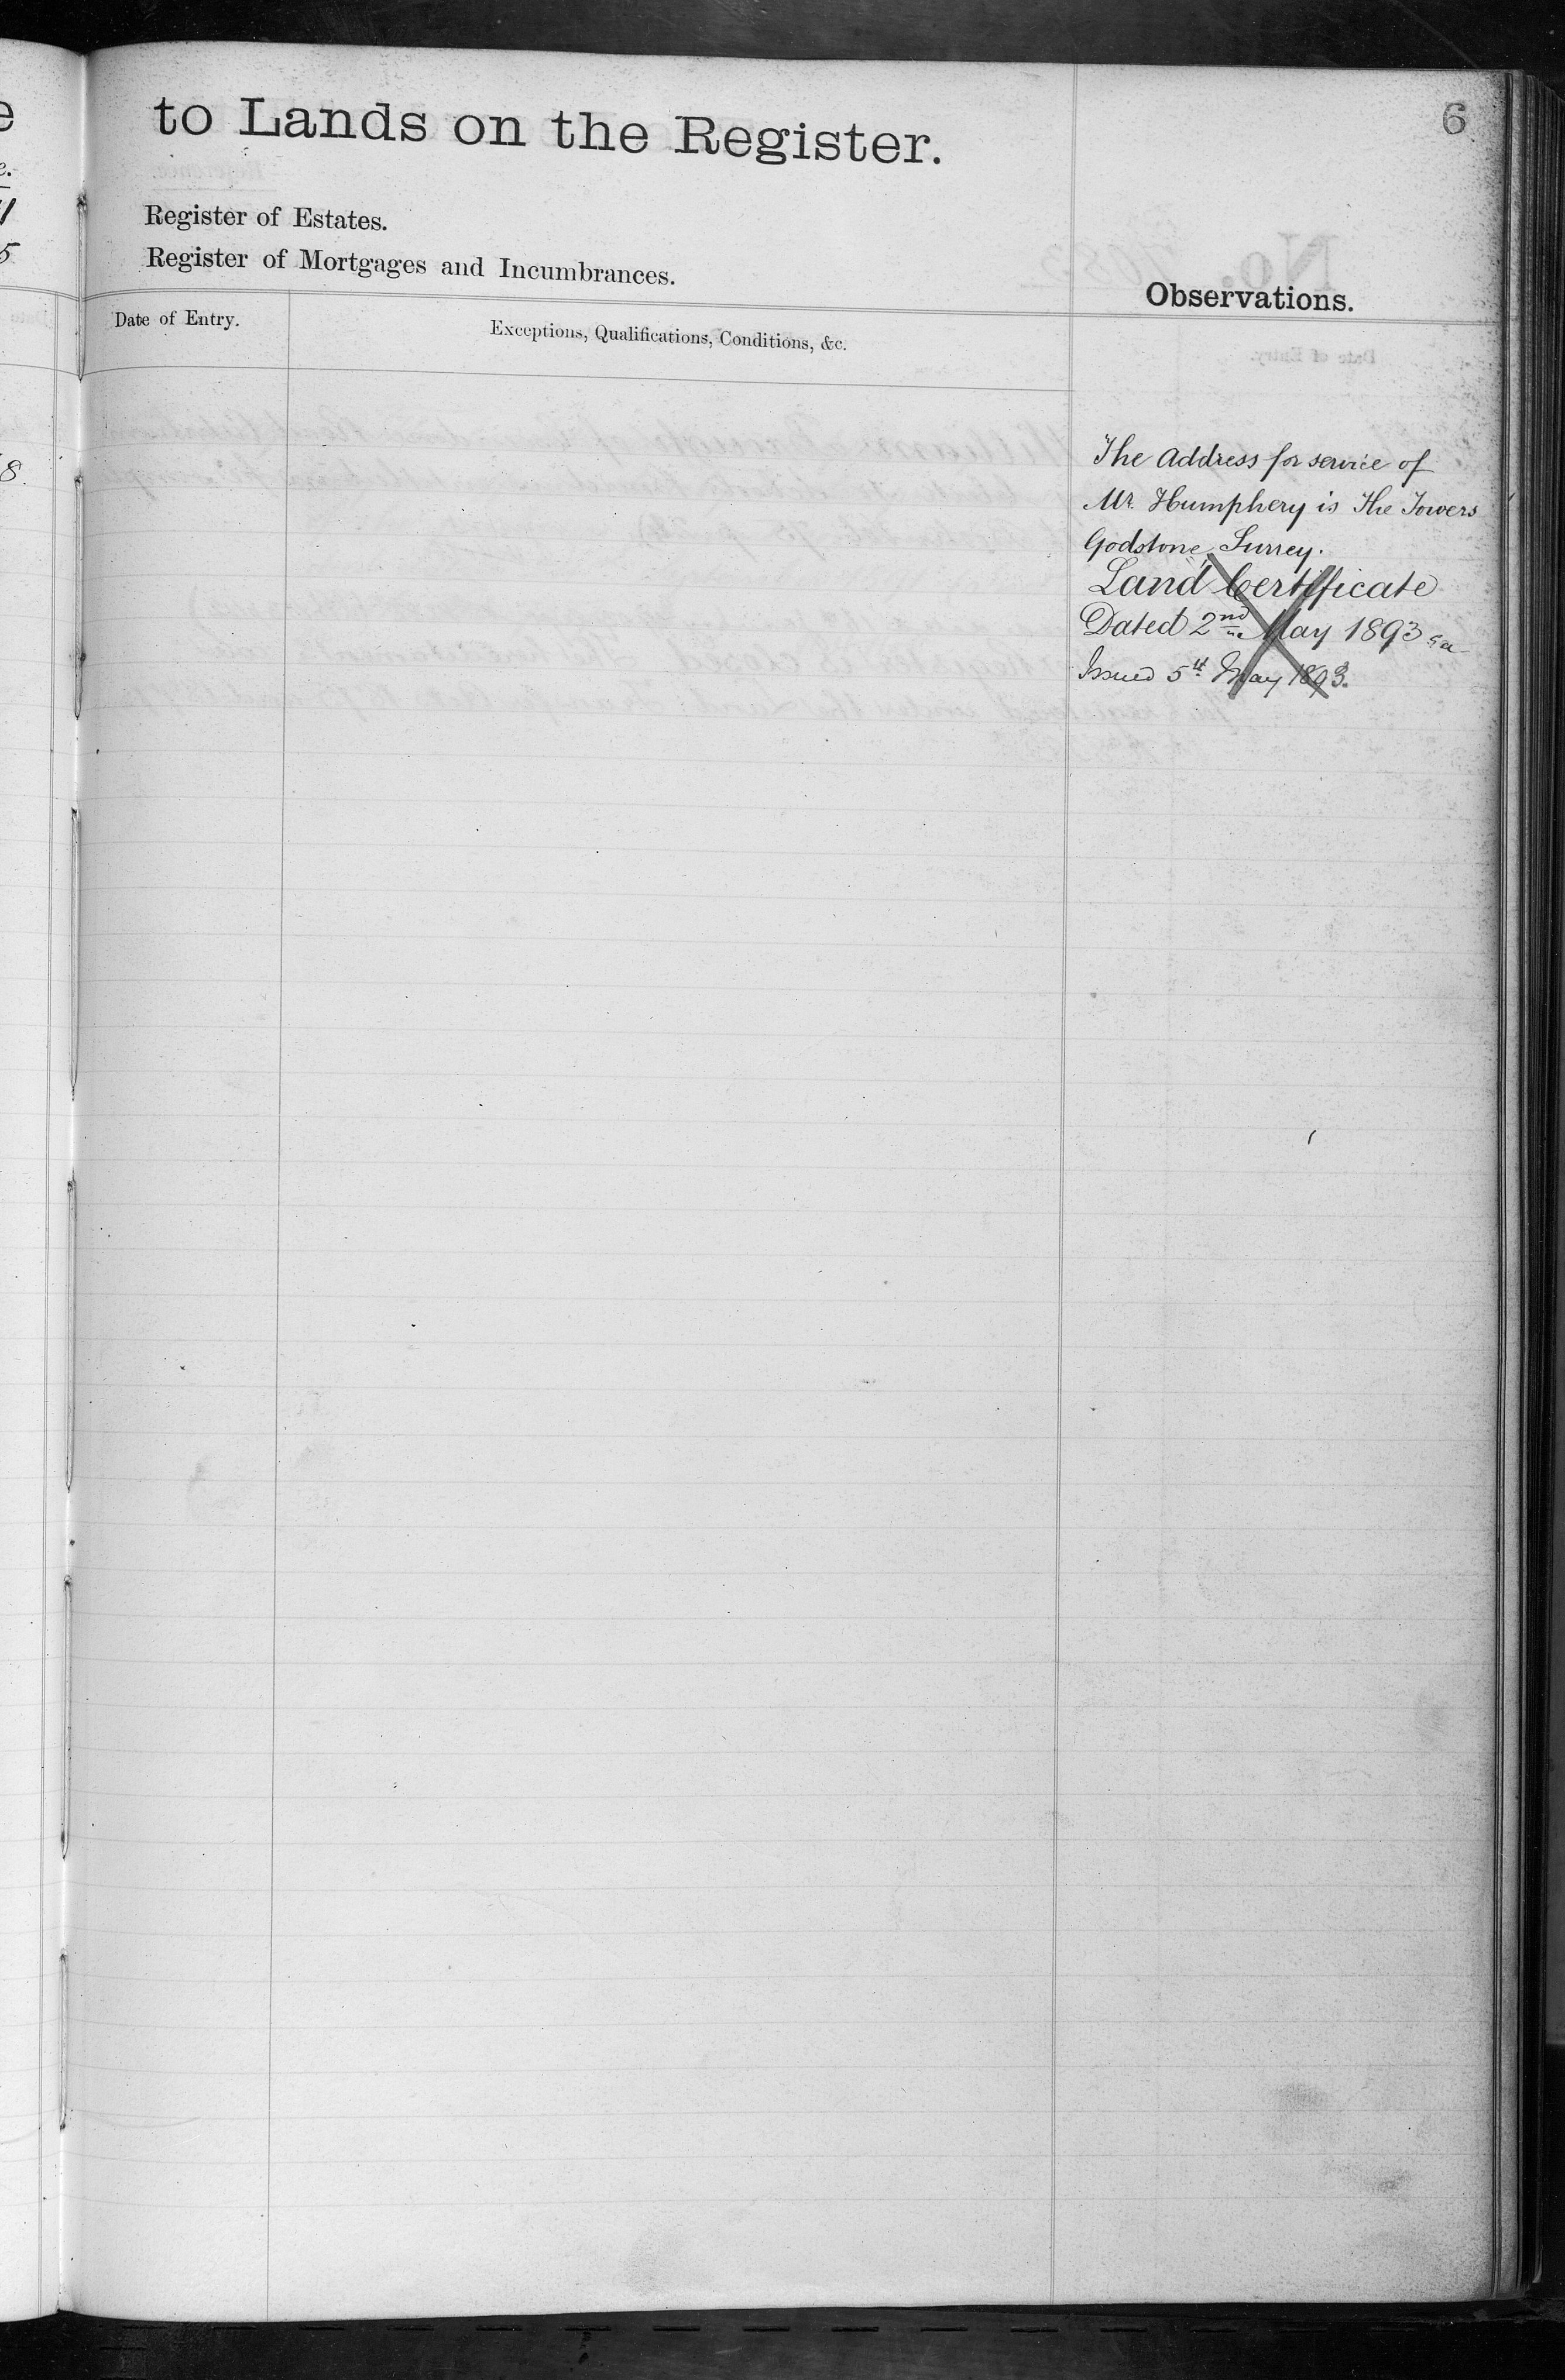 to Lands on the Register.
6
Register of Estates.
Register of Mortgages and Incumbrances.
Observations.
Date of Entry.
Exceptions, Qualifications, Conditions, &c.
The Address for service of
Mr. Humphery is The Towers
Godstone, Surrey.
Land Certificate
Dated 2nd May 1893
Issued 5th May 1893.